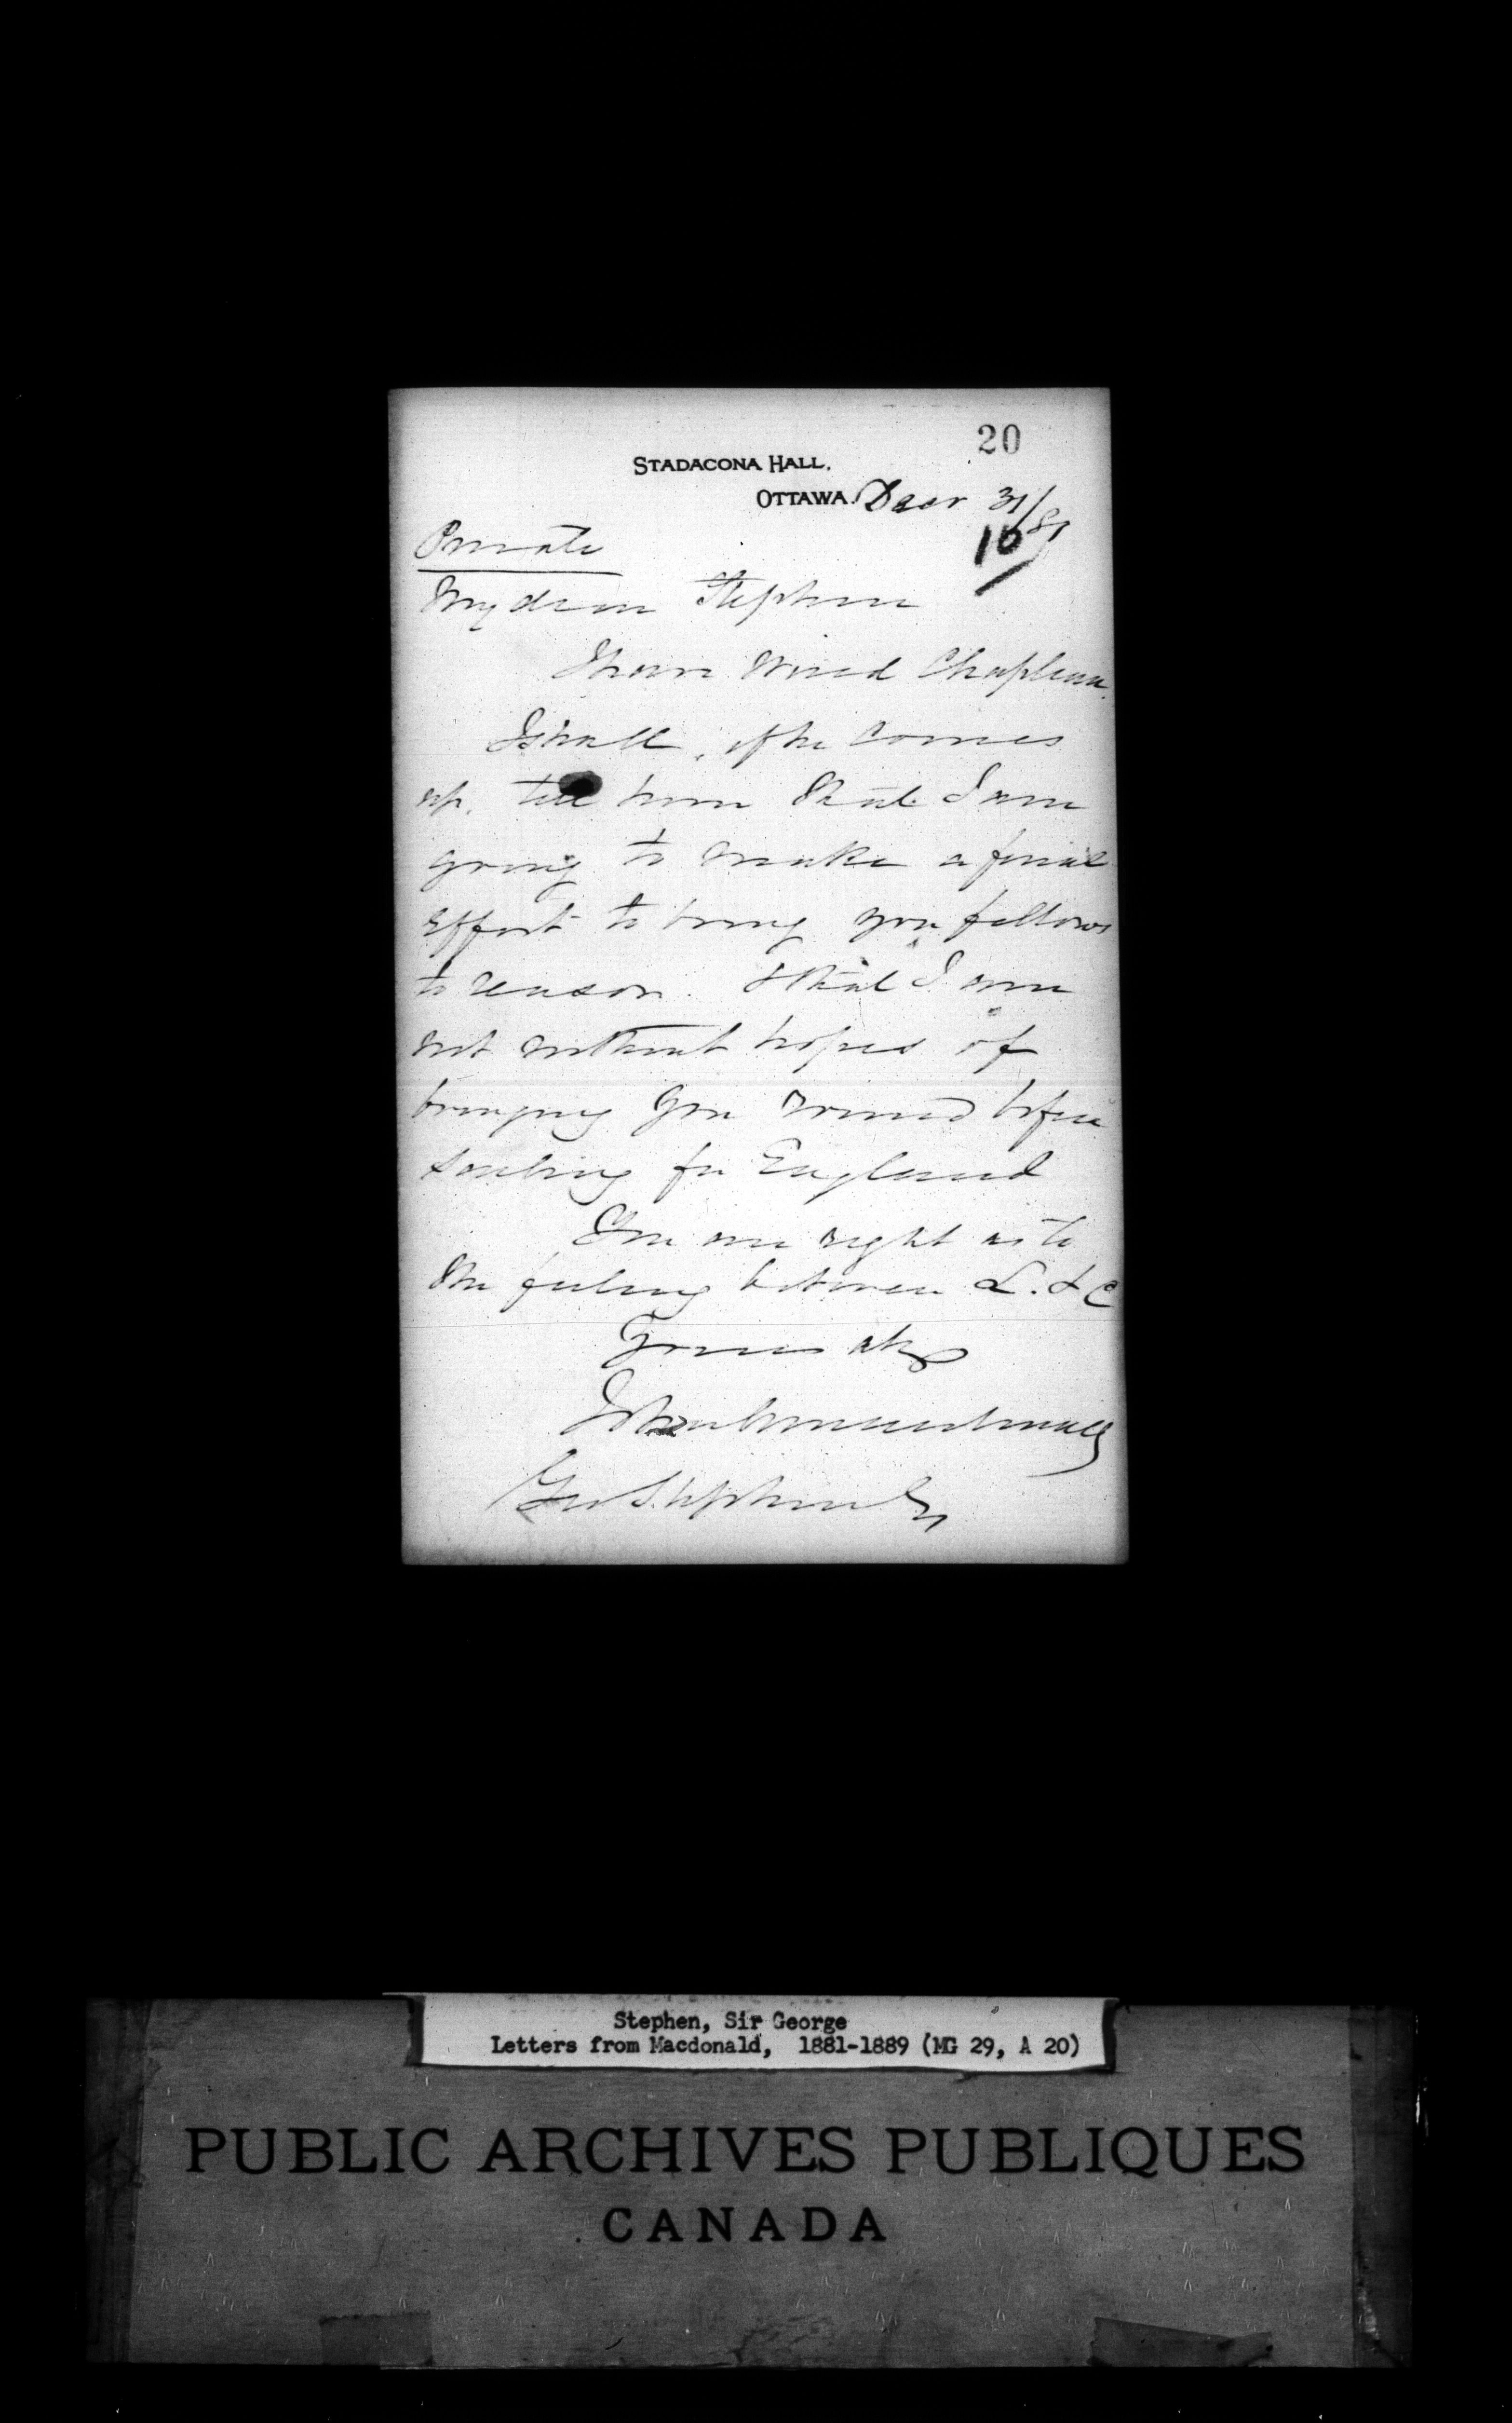 20
STADACONA HALL.
OTTAWA. Decr 31/81
10
Private
My dear Stephen
I have wired Chapleau.
I shall, if he comes
up, tell him that I am
going to make a final
effort to bring you fellows
to reason. & that I am
not without hopes of
bringing you round before
sailing for England
You are right as to
the feeling between L. & C
Yours
John A Macdonald
Geo Stephen Esq
Stephen, Sir George
Letters from Macdonald, 1881-1889 (MG 29, A 20)
PUBLIC ARCHIVES PUBLIQUES
CANADA